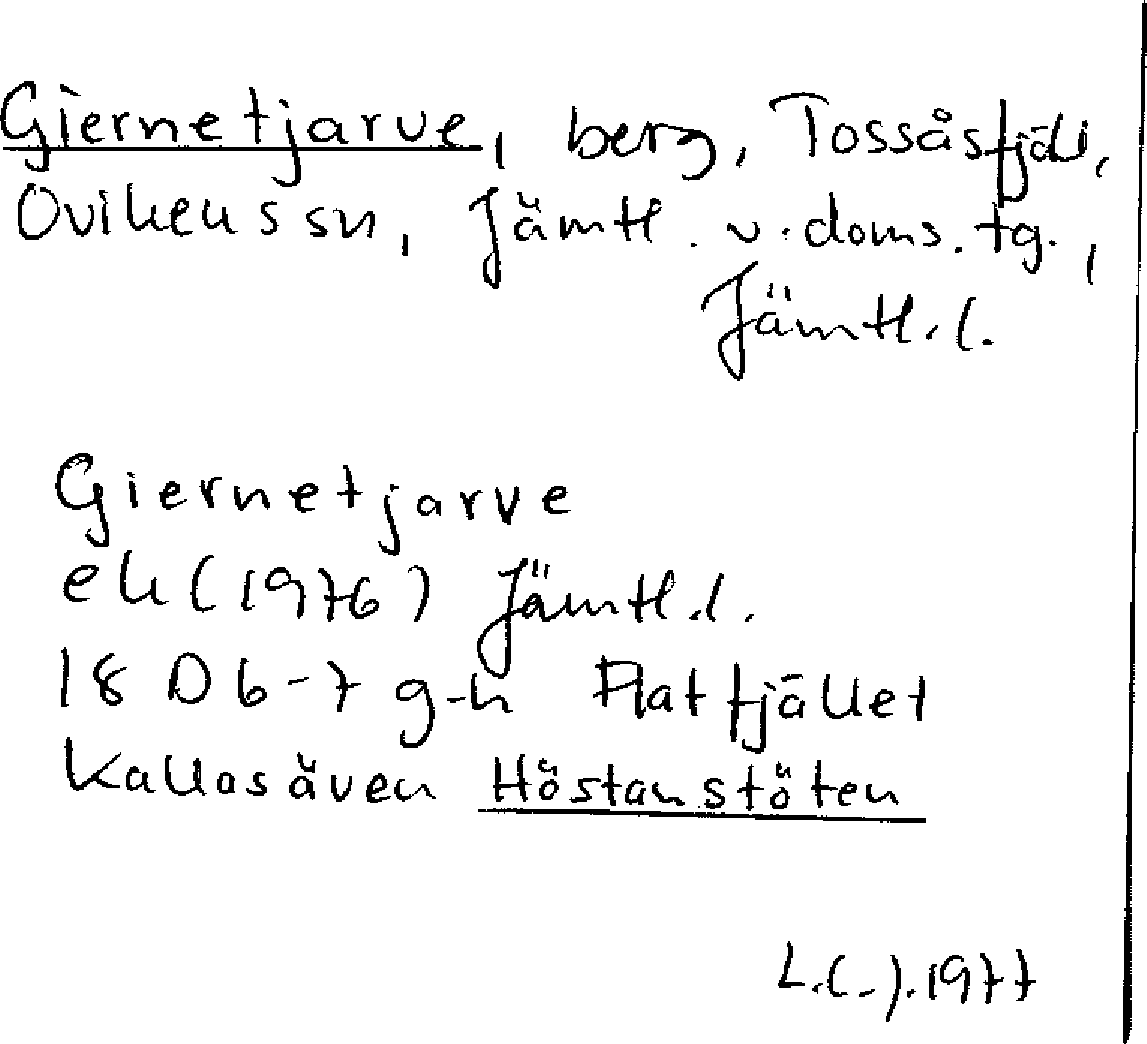 Giernetjarve, berg, Tossåsfjäll,
Ovikens sn, Jämtl. v. doms. tg.,
Jämtl. l.
Giernetjarve
ek (1976) Jämtl. l.
18 D 6-7 g-h Flatfjället
Kallas även Höstanstöten
L.C-J. 1977